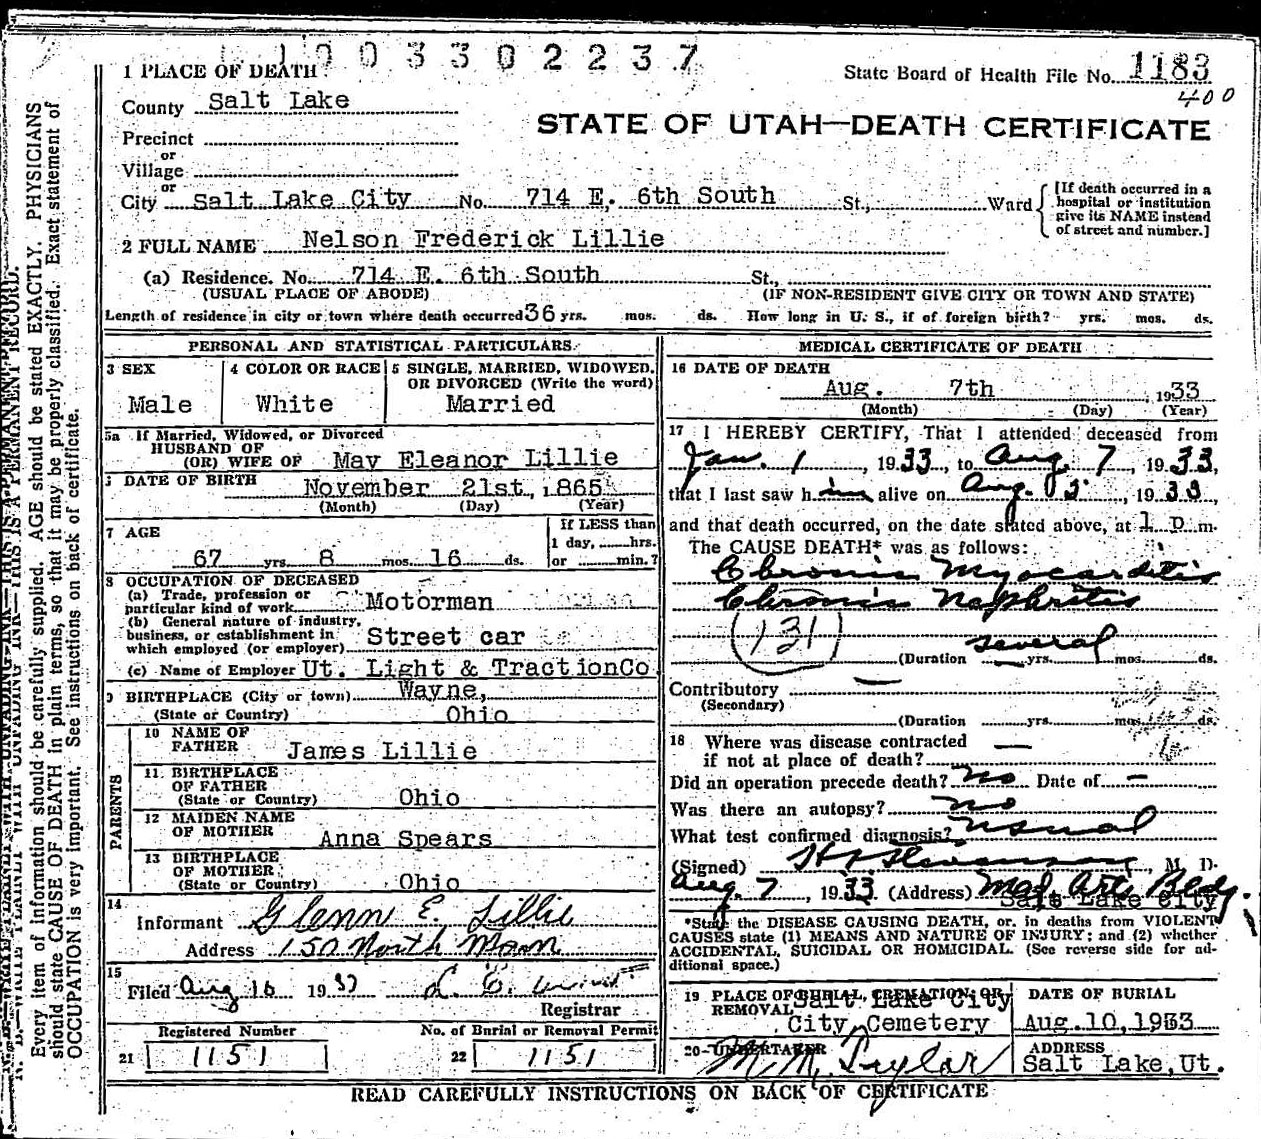 1003302237
1 PLACE OF DEATH
State Board of Health File No. 1183
400
County Salt Lake
STATE OF UTAH—DEATH CERTIFICATE
Precinct
or
Village
or
City Salt Lake City No. 714 E. 6th South St., Ward
[If death occurred in a
hospital or institution
give its NAME instead
of street and number.]
2 FULL NAME Nelson Frederick Lillie
(a) Residence. No. 714 E. 6th South St.,
(USUAL PLACE OF ABODE) (IF NON-RESIDENT GIVE CITY OR TOWN AND STATE)
Length of residence in city or town where death occurred 36 yrs. mos. ds. How long in U. S., if of foreign birth? yrs. mos. ds.
PERSONAL AND STATISTICAL PARTICULARS.
3 SEX
Male
4 COLOR OR RACE
White
5 SINGLE, MARRIED, WIDOWED,
OR DIVORCED (Write the word)
Married
5a If Married, Widowed, or Divorced
HUSBAND OF
(OR) WIFE OF May Eleanor Lillie
DATE OF BIRTH November 21st, 1865
(Month) (Day) (Year)
7 AGE
67 yrs 8 mos. 16 ds.
If LESS than
1 day, hrs.
or min.?
8 OCCUPATION OF DECEASED
(a) Trade, profession or
particular kind of work Motorman
(b) General nature of industry,
business, or establishment in
which employed (or employer) Street car
(c) Name of Employer Ut. Light & TractionCo
9 BIRTHPLACE (City or town) Wayne,
(State or Country) Ohio
PARENTS
10 NAME OF
FATHER James Lillie
11 BIRTHPLACE
OF FATHER
(State or Country) Ohio
12 MAIDEN NAME
OF MOTHER Anna Spears
13 BIRTHPLACE
OF MOTHER
(State or Country) Ohio
14
Informant Glenn E. Lillie
Address 150 North Main
15
Filed Aug 10 1933
Registrar
Registered Number No. of Burial or Removal Permit
21 1151 22 1151
MEDICAL CERTIFICATE OF DEATH
16 DATE OF DEATH
Aug. 7th, 1933
(Month) (Day) (Year)
17 I HEREBY CERTIFY, That I attended deceased from
Jan. 1, 1933, to Aug. 7, 1933,
that I last saw him alive on Aug. 5, 1933,
and that death occurred, on the date stated above, at 1 p m.
The CAUSE DEATH* was as follows:
Chronic Myocarditis
Chronic Nephritis
131
several
(Duration yrs. mos. ds.
Contributory
(Secondary)
(Duration yrs. mos. ds.
18 Where was disease contracted
if not at place of death? —
Did an operation precede death? no Date of —
Was there an autopsy? no
What test confirmed diagnosis? usual
(Signed) Stevenson, M. D.
Aug. 7, 1933 (Address) Med. Arts Bldg.
Salt Lake City
*State the DISEASE CAUSING DEATH, or, in deaths from VIOLENT
CAUSES state (1) MEANS AND NATURE OF INJURY; and (2) whether
ACCIDENTAL, SUICIDAL OR HOMICIDAL. (See reverse side for ad-
ditional space.)
19 PLACE OF BURIAL, CREMATION OR
REMOVAL Salt Lake City
City Cemetery
DATE OF BURIAL
Aug. 10, 1933
20 UNDERTAKER
Taylor
ADDRESS
Salt Lake, Ut.
READ CAREFULLY INSTRUCTIONS ON BACK OF CERTIFICATE
Every item of information should be carefully supplied. AGE should be stated EXACTLY. PHYSICIANS
should state CAUSE OF DEATH in plain terms, so that it may be properly classified. Exact statement of
OCCUPATION is very important. See instructions on back of certificate.